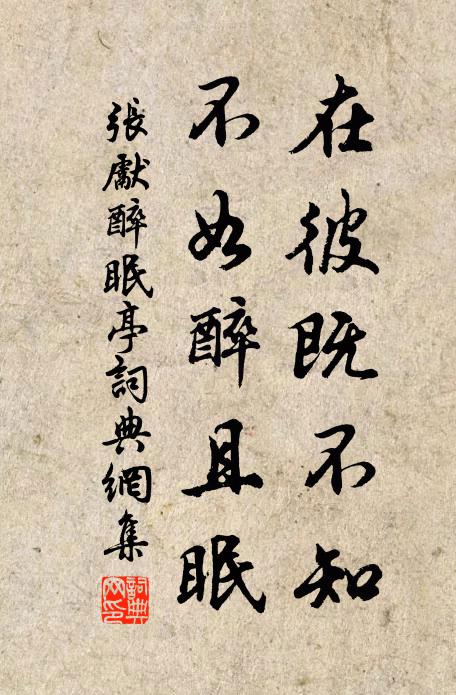 在彼既不知
不如醉且眠
張獻醉眠亭詞典網集
詞典
網印